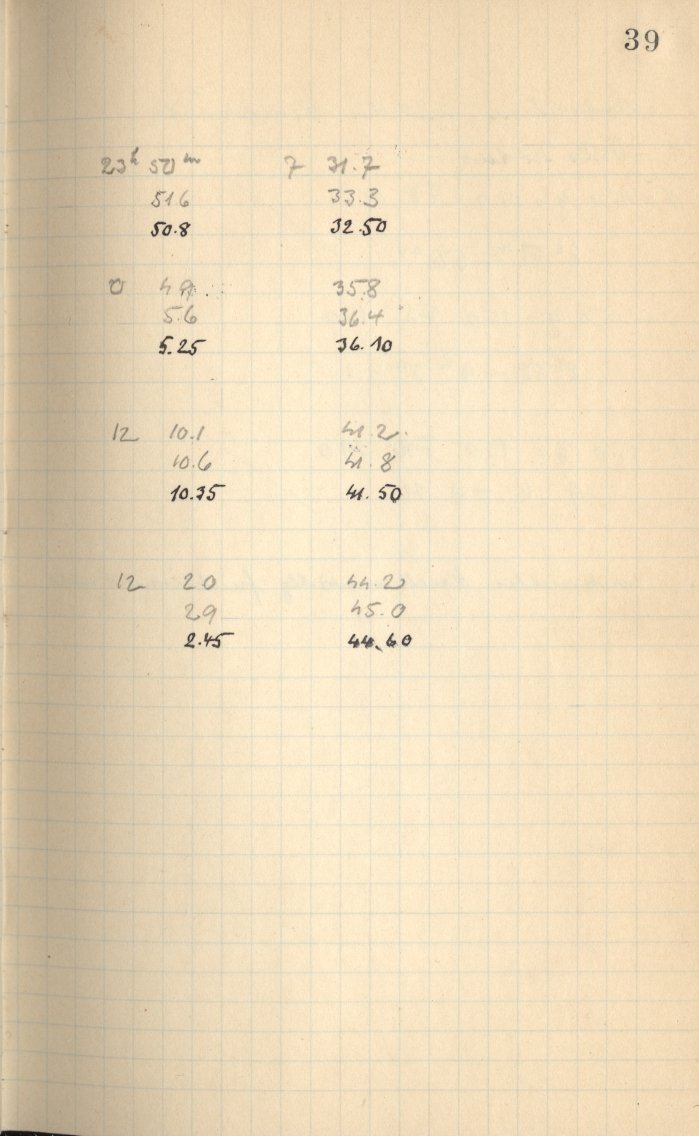 39
23h 50m 7 31.7
51 6 33.3
50.8 32.50
0 4 9 35.8
5.6 36.4
5.25 36.10
12 10.1 41.2
10.6 41.8
10.35 41.50
12 2 0 44.2
2 9 45.0
2.45 44.60